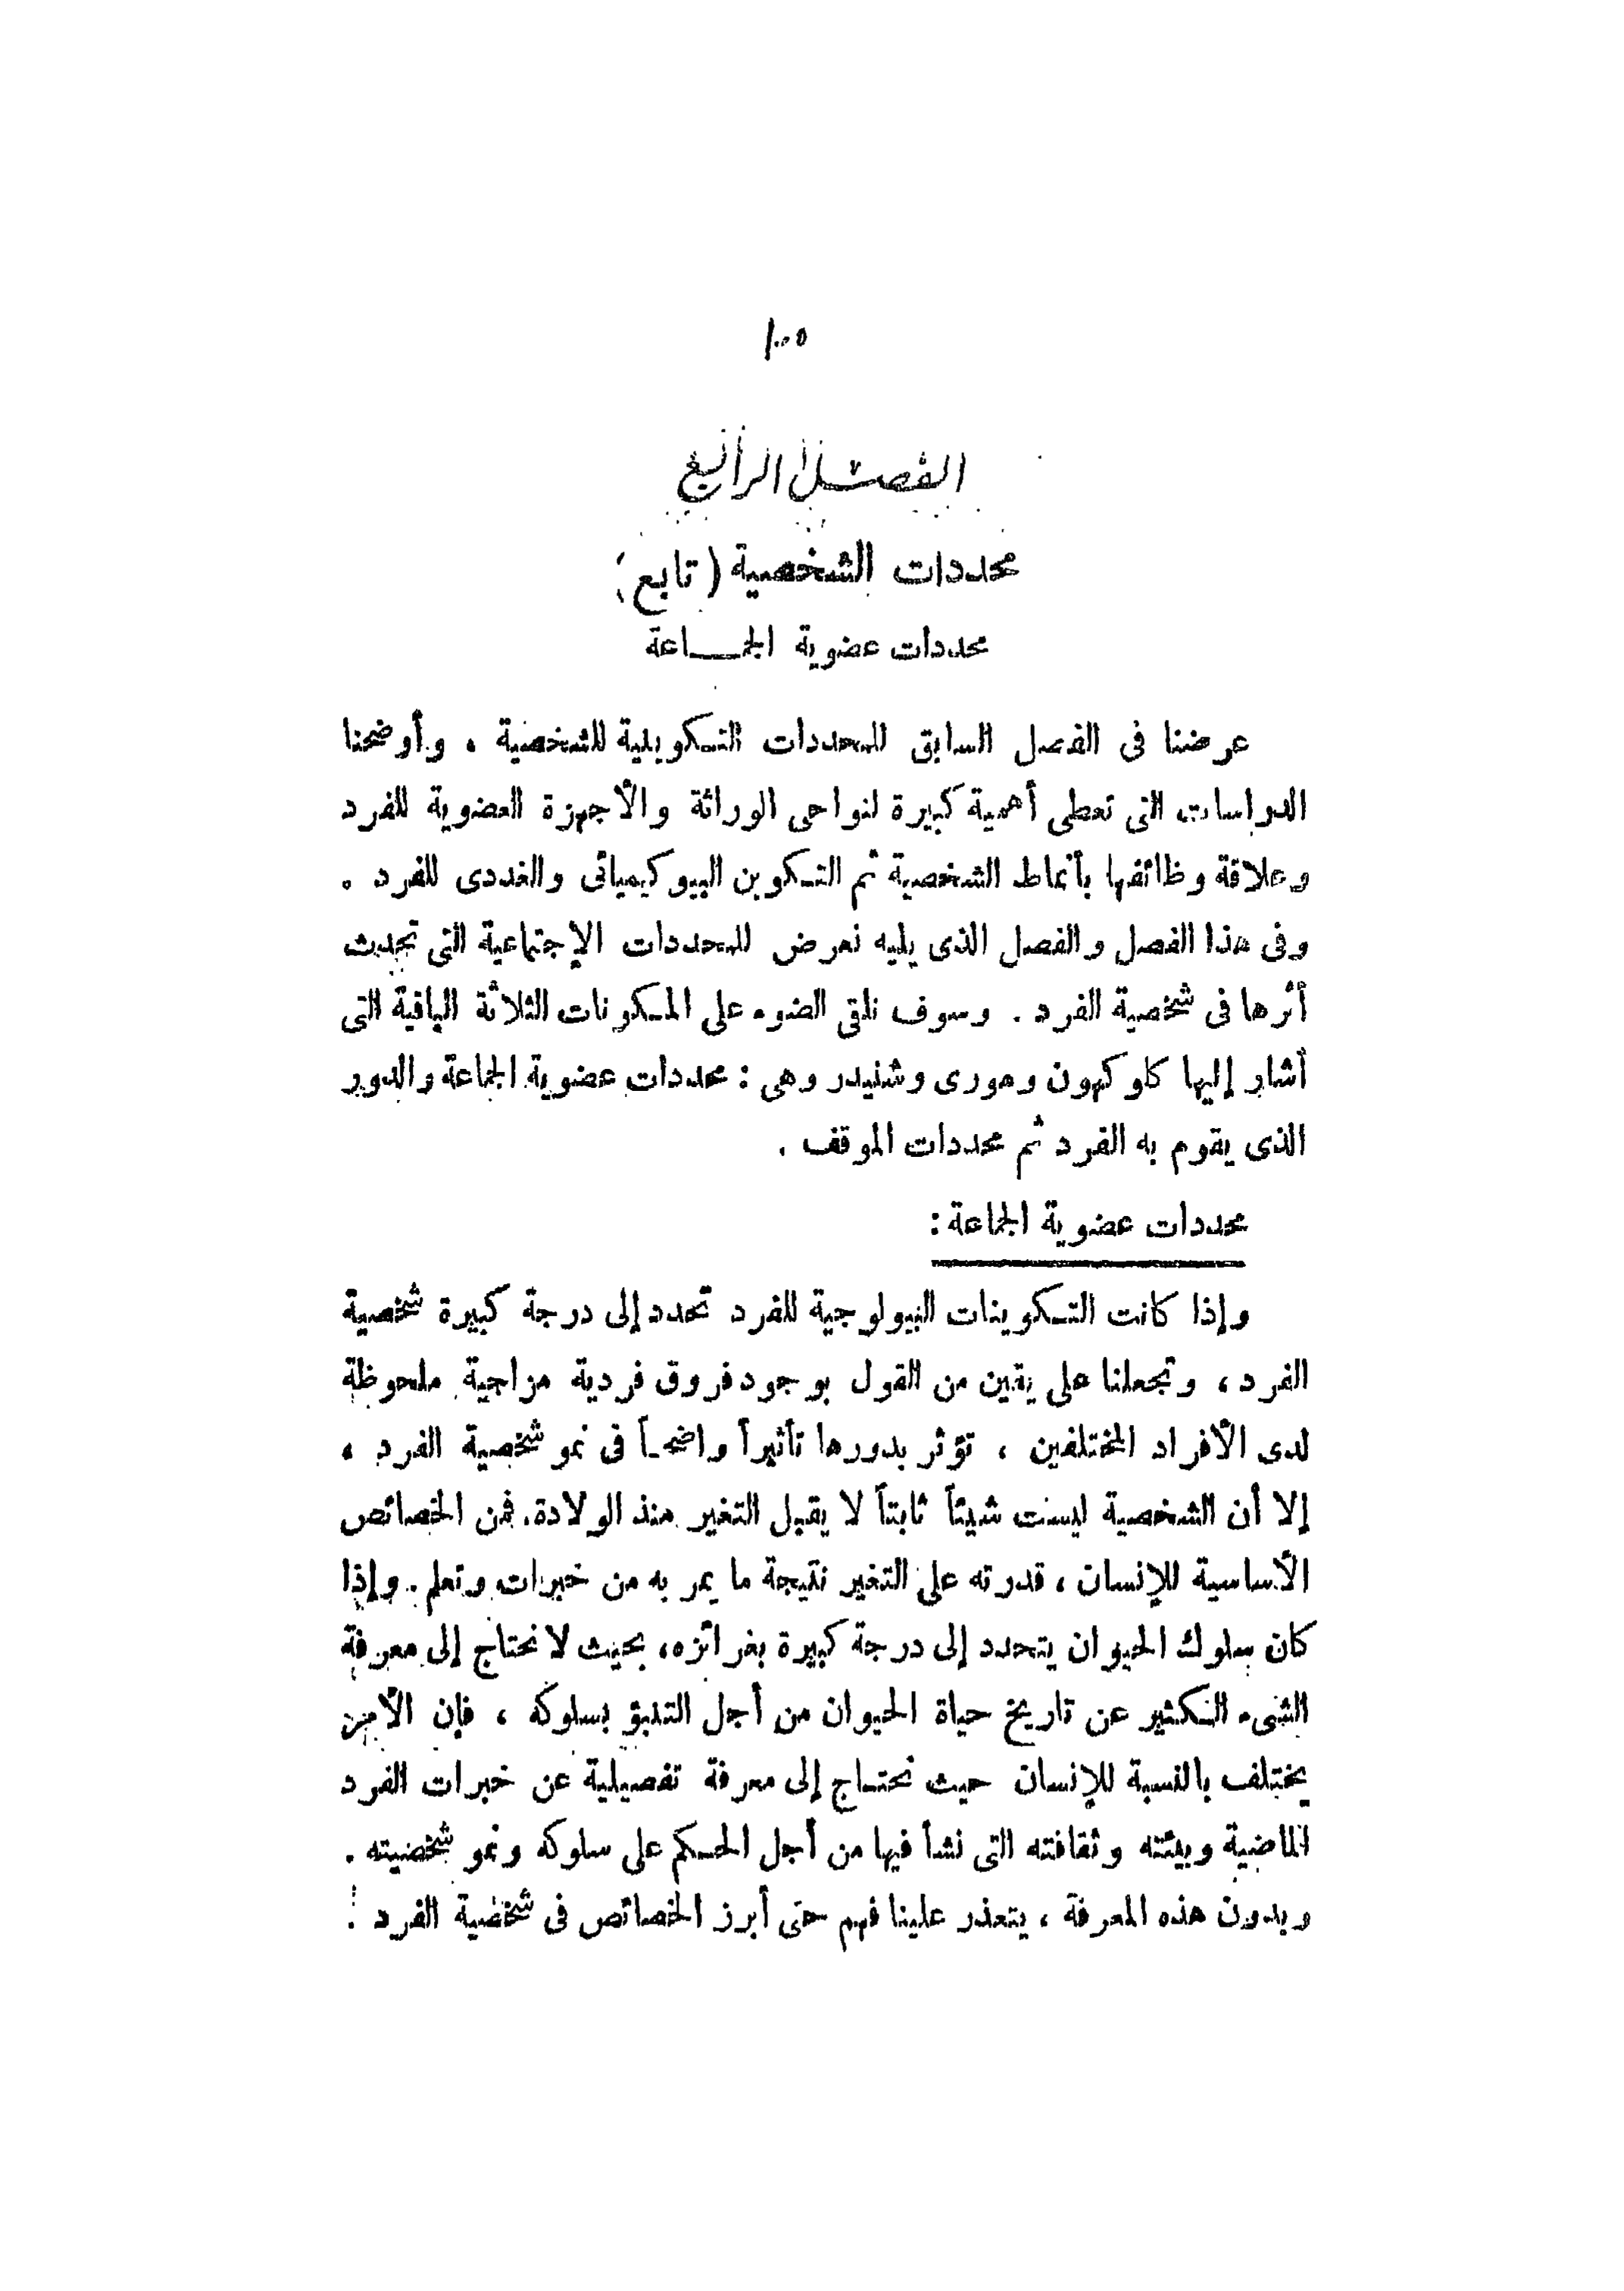 ١٠٥
الفصل الرابع
محددات الشخصية (تابع)
محددات عضوية الجماعة
عرضنا فى الفصل السابق للمحددات التكوينية للشخصية ، وأوضحنا
الدراسات التى تعطى أهمية كبيرة لنواحى الوراثة والأجهزة العضوية للفرد
وعلاقة وظائفها بأنماط الشخصية ثم التكوين البيوكيميائى والغددى للفرد .
وفى هذا الفصل والفصل الذى يليه نعرض للمحددات الإجتماعية التى تحدث
أثرها فى شخصية الفرد . وسوف نلقى الضوء على المكونات الثلاثة الباقية التى
أشار إليها كلوكهون ومورى وشنيدر وهى : محددات عضوية الجماعة والدور
الذى يقوم به الفرد ثم محددات الموقف .
محددات عضوية الجماعة :
وإذا كانت التكوينات البيولوجية للفرد تحدد إلى درجة كبيرة شخصية
الفرد ، وتجعلنا على يقين من القول بوجود فروق فردية مزاجية ملحوظة
لدى الأفراد المختلفين ، تؤثر بدورها تأثيراً واضحاً فى نمو شخصية الفرد ،
إلا أن الشخصية ليست شيئاً ثابتاً لا يقبل التغير منذ الولادة . فمن الخصائص
الأساسية للإنسان ، قدرته على التغير نتيجة ما يمر به من خبرات وتعلم . وإذا
كان سلوك الحيوان يتحدد إلى درجة كبيرة بغرائزه ، بحيث لا نحتاج إلى معرفة
الشىء الكثير عن تاريخ حياة الحيوان من أجل التنبؤ بسلوكه ، فإن الأمر
يختلف بالنسبة للإنسان حيث نحتاج إلى معرفة تفصيلية عن خبرات الفرد
الماضية وبيئته وثقافته التى نشأ فيها من أجل الحكم على سلوكه ونمو شخصيته .
وبدون هذه المعرفة ، يتعذر علينا فهم حتى أبرز الخصائص فى شخصية الفرد .